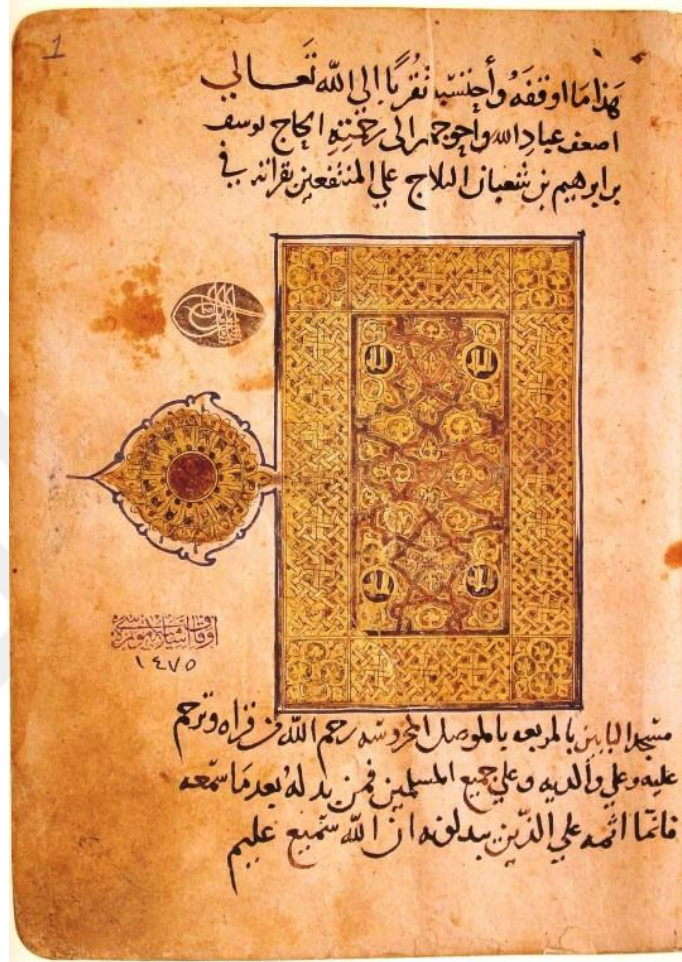 1
هذا ما اوقفه وأحبسه تقربا إلي الله تعالي
اضعف عباد الله وأحوجهم الى رحمته الحاج يوسف
بن ابرهيم بن شعبان البلاج علي المنتفعين بقرانه في
الله الله
الله الله
اوقاف
١٤٧٥
مسجد البابين بالمربعه بالموصل المحروسه رحم الله من قراه وترحم
عليه وعلي والديه وعلي جميع المسلمين فمن بدله بعد ما سمعه
فانما اثمه علي الذين يبدلونه ان الله سميع عليم